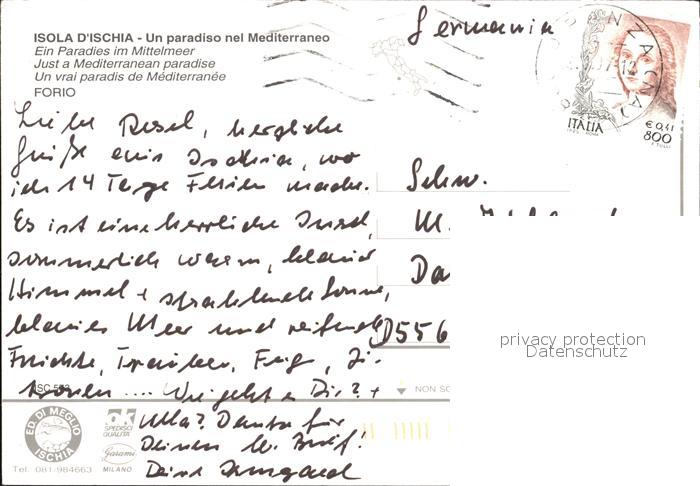 ISOLA D'ISCHIA - Un paradiso nel Mediterraneo
Ein Paradies im Mittelmeer
Just a Mediterranean paradise
Un vrai paradis de Méditerranée
FORIO
Germania
ITALIA
€ 0,41
800
Liebe Resel, herzliche
Grüße aus Ischia, wo
ich 14 Tage Ferien mache.
Es ist eine herrliche Insel,
sommerlich warm, blauer
Himmel + strahlende Sonne,
blaues Meer und reifende
Früchte, Trauben, Feigen, Zi-
tronen .... Wie geht es Dir? +
Ulla? Danke für
Deinen lb. Brief!
Deine Irmgard
Schw.
M.
Da
D556
privacy protection
Datenschutz
NON SC
ED. DI MEGLIO
ISCHIA
Tel. 081-984663
OK
SPEDISCI
QUALITÀ
Garami
MILANO